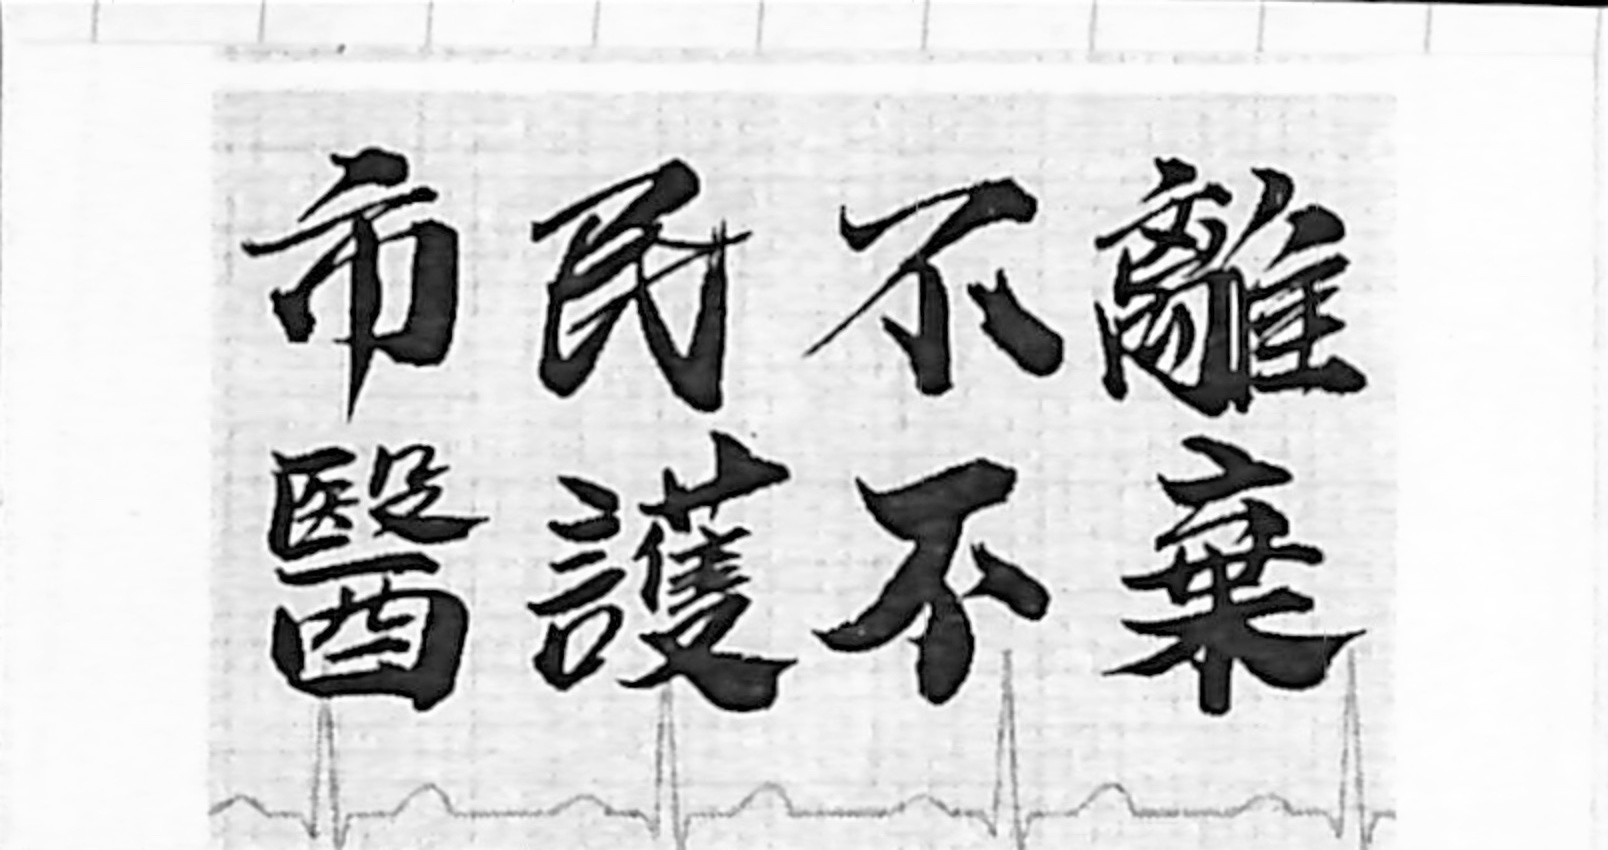 市民不離
醫護不棄